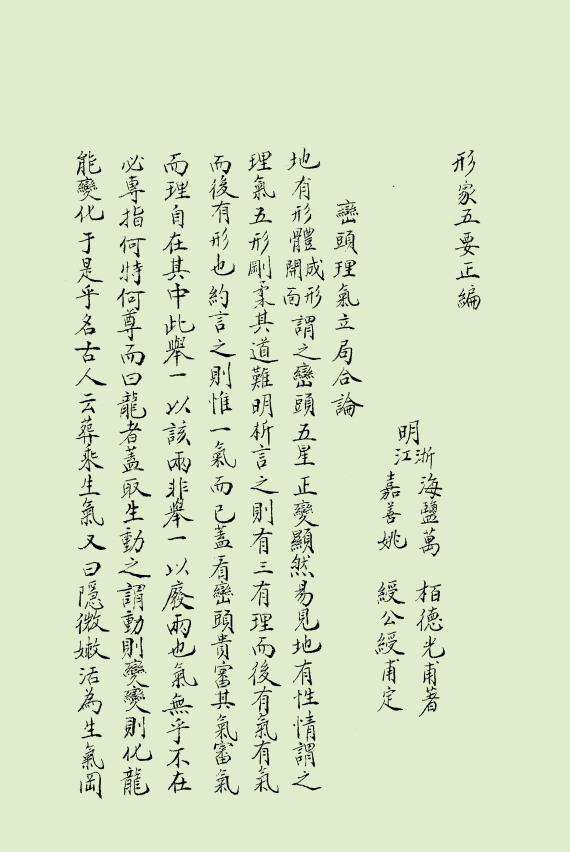 形家五要正編
明浙江海鹽萬 栢德光甫著
嘉善姚 綬公綬甫定
巒頭理氣立局合論
地有形體成形開面謂之巒頭五星正變顯然易見地有性情謂之
理氣五形剛柔其道難明析言之則有三有理而後有氣有氣
而後有形也約言之則惟一氣而已蓋看巒頭貴審其氣審氣
而理自在其中此舉一以該兩非舉一以廢兩也氣無乎不在
必專指何特何尊而曰龍者蓋取生動之謂動則變變則化龍
能變化于是乎名古人云葬乘生氣又曰隱微嫩活為生氣岡